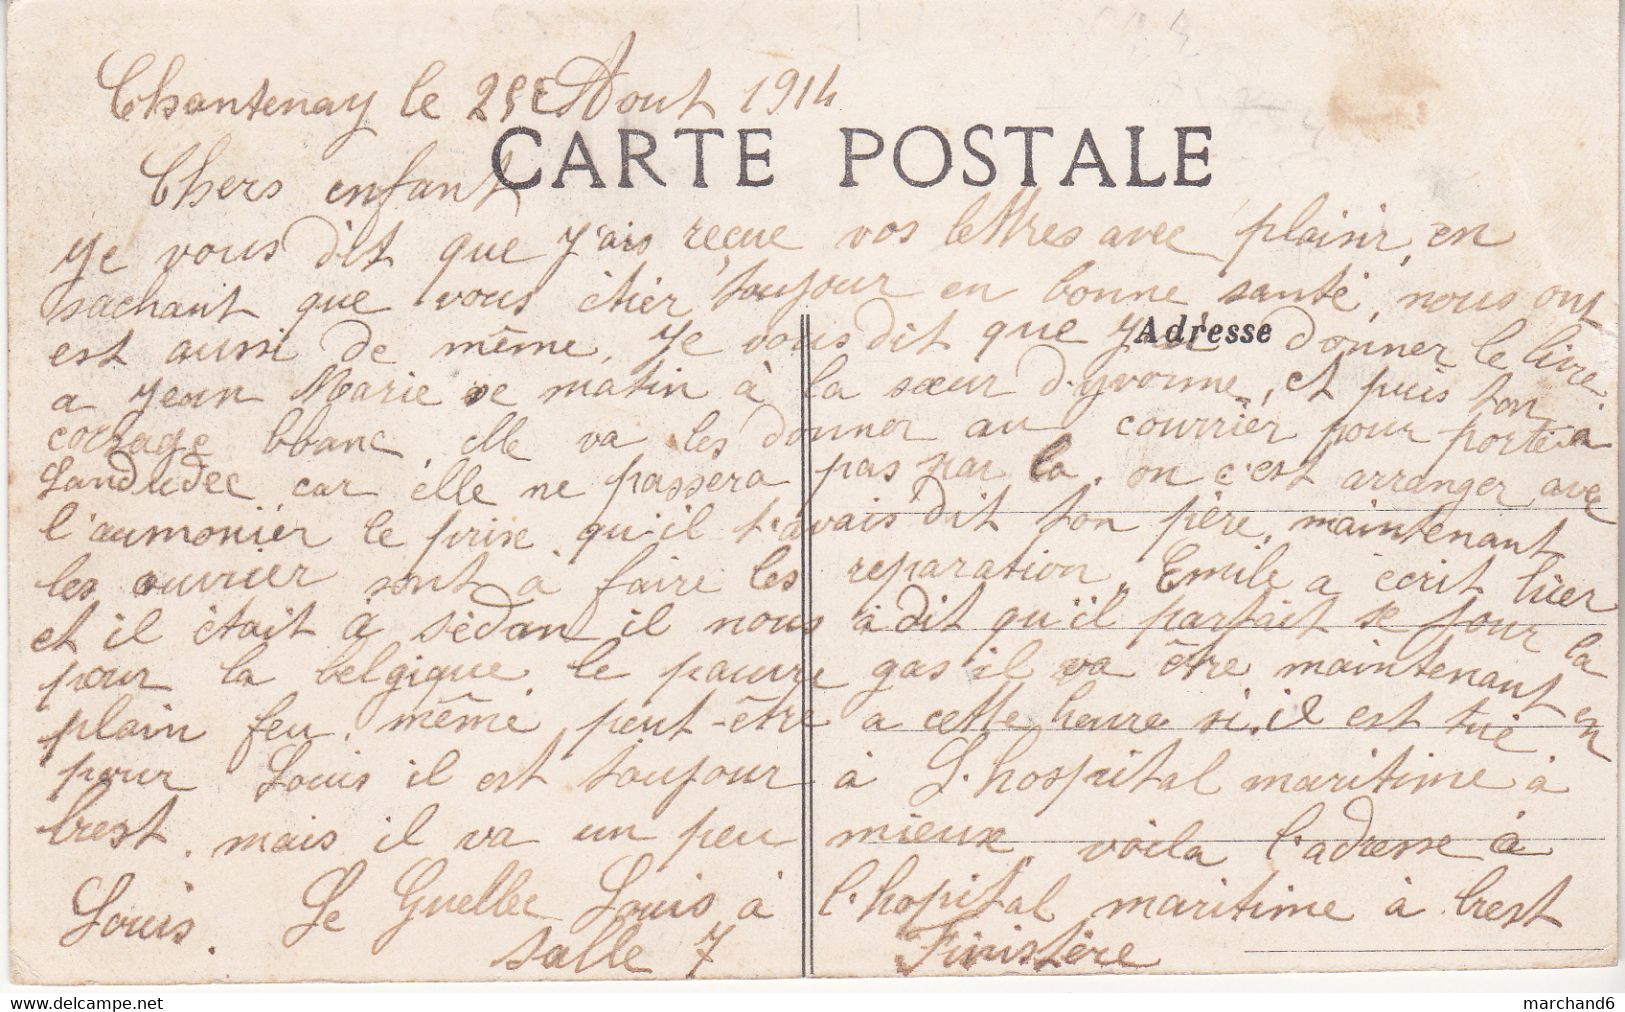 Chantenay le 25E Aout 1914
CARTE POSTALE
Chers enfant
Je vous dit que j'ais reçue vos lettres avec plaisir, en
sachant que vous étier toujour en bonne santé, nous ont
est aussi de même, Je vous dit que J'ai donner le livre
Adresse
a Jean Marie ce matin à la sœur d'yvonne, et puis ton
corsage blanc, elle va les donner au courrier pour porté à
Landudec car elle ne passera pas par la, on c'est arranger avec
l'aumonier le prix qu'il t'avais dit ton père, maintenant
les ouvrier sont à faire les reparation, Emile a écrit hier
et il était à sédan il nous à dit qu'il partait se jour la
pour la belgique le pauvre gas il va être maintenant en
plain feu, même peut-être a cette heure si il est tué
pour Louis il est toujour à L'hospital maritime à
brest, mais il va un peu mieux, voila l'adresse à
Louis. Le Guellec Louis à l'hopital maritime à brest
salle 7 Finistère
marchand6